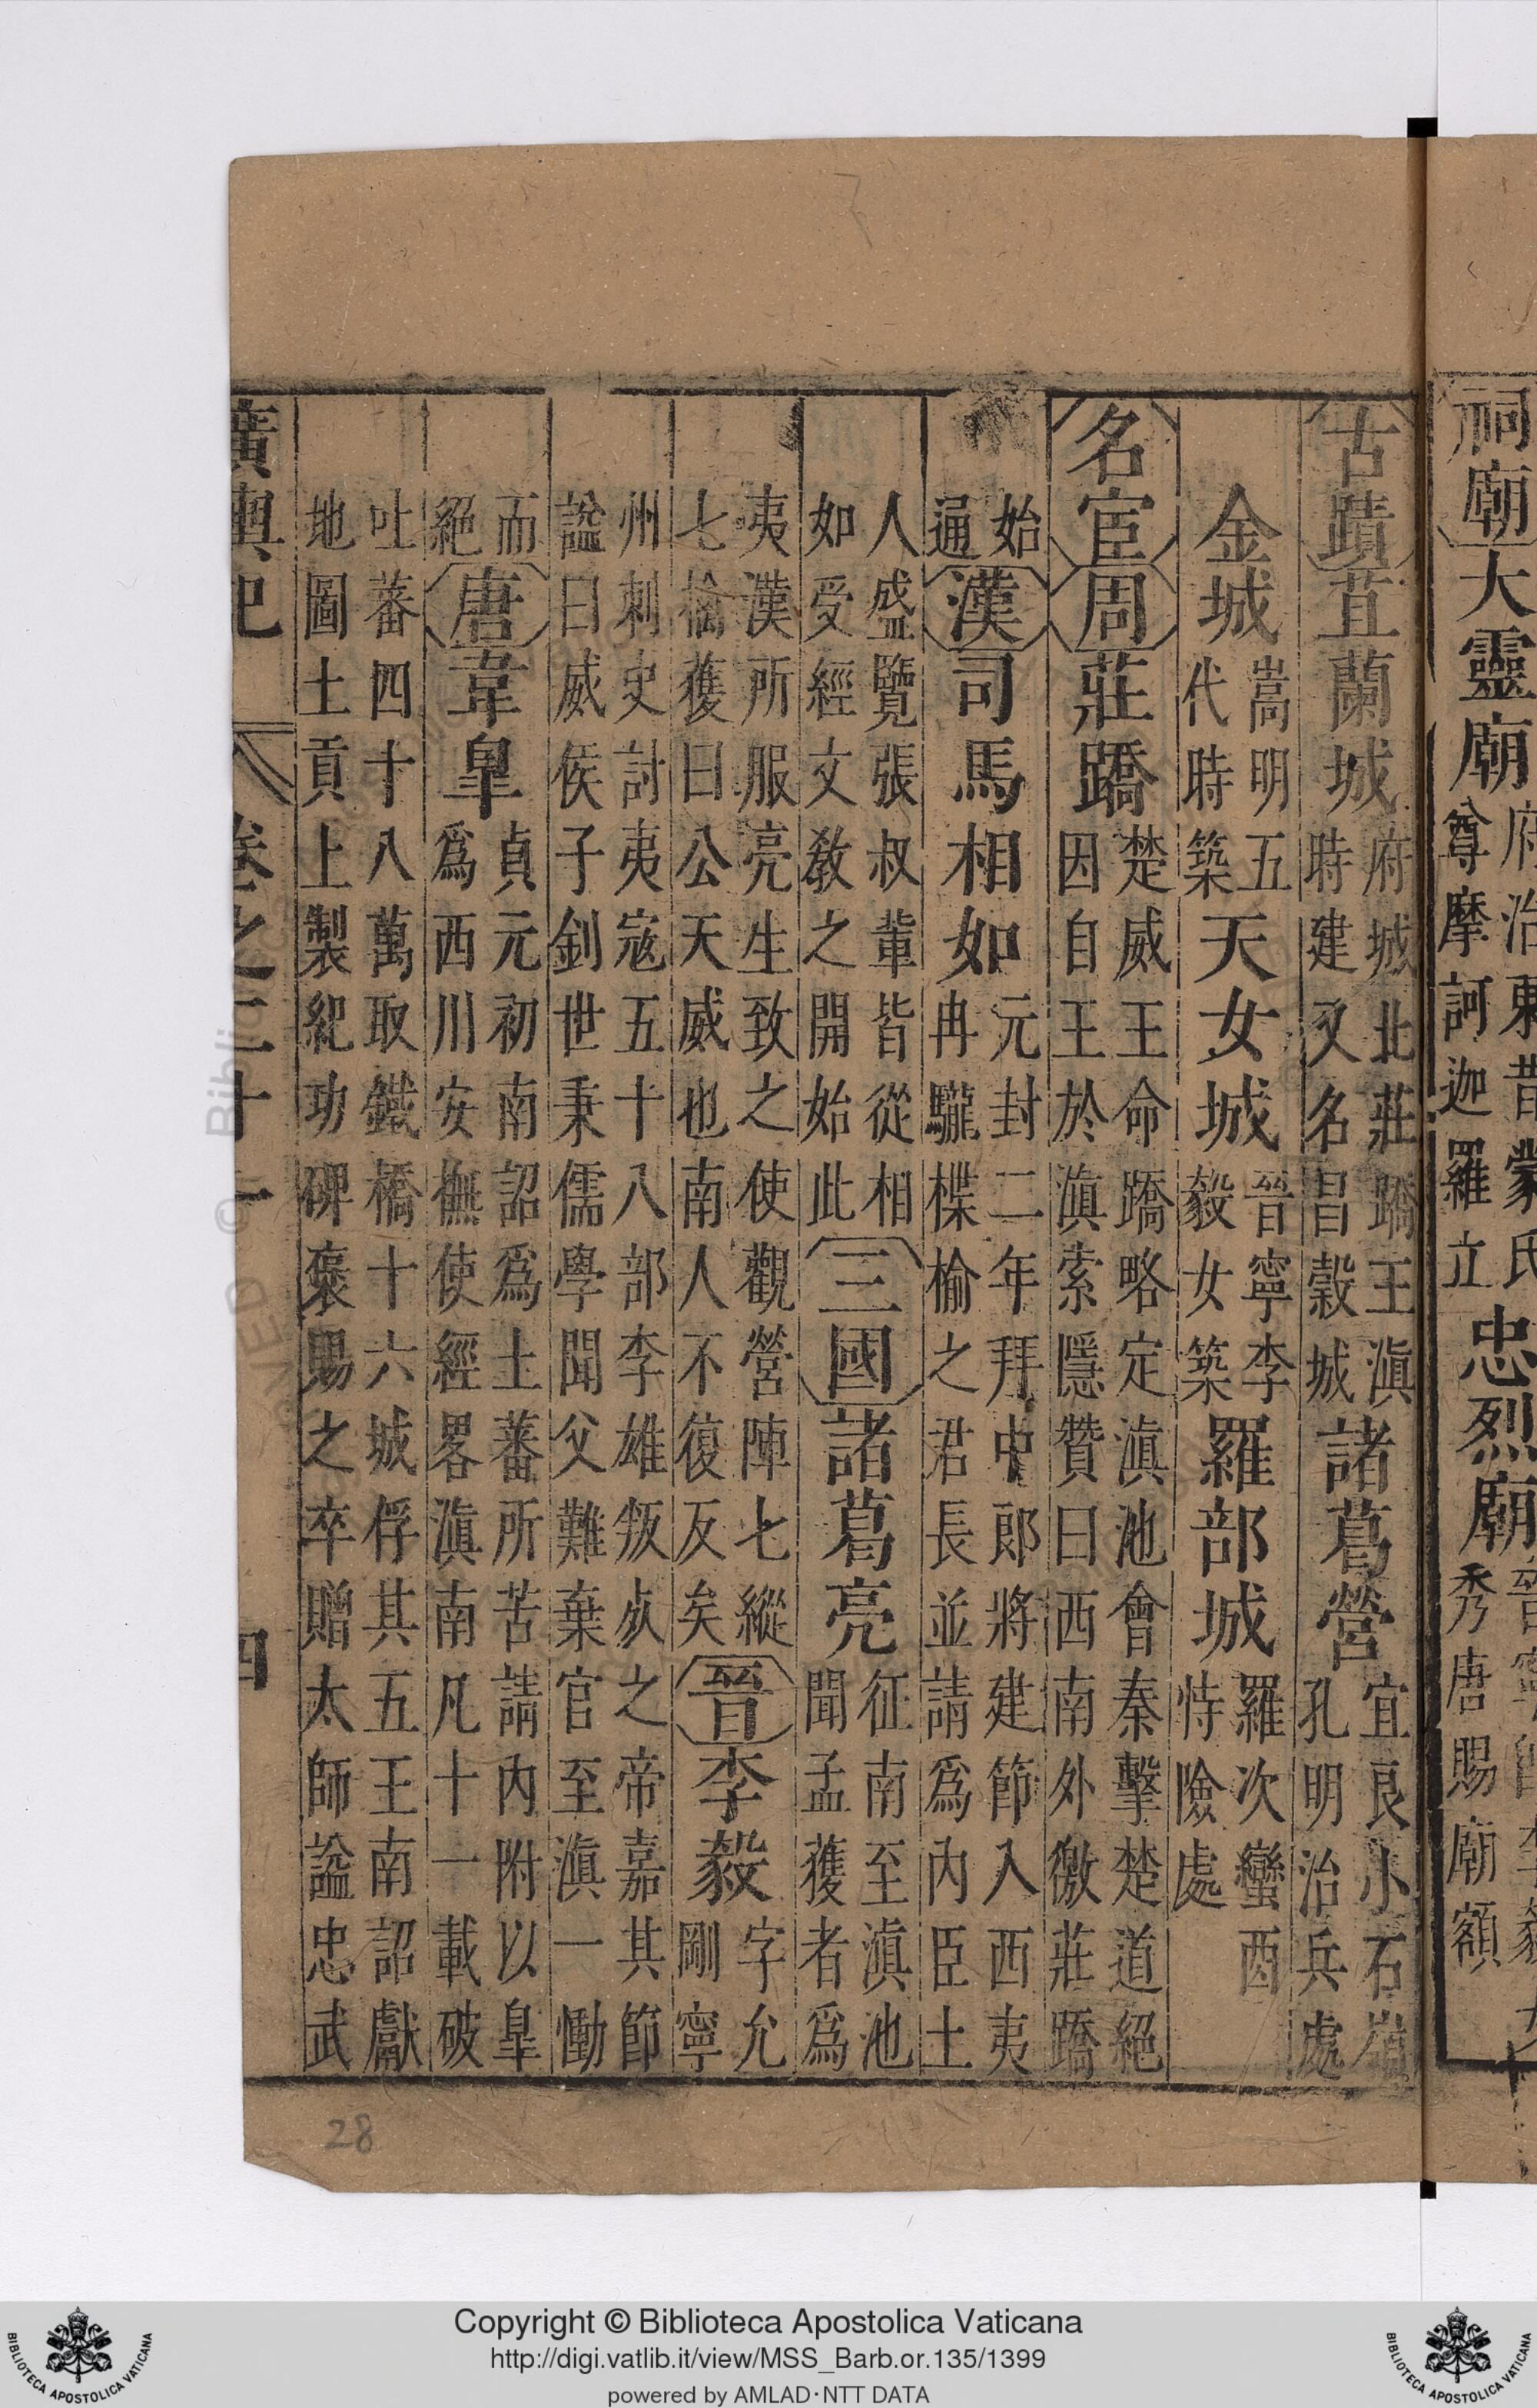 祠廟 大靈廟 府治東昔蒙氏尊摩訶迦羅立 忠烈廟 秀唐賜廟額
古蹟 苴蘭城 府城北莊蹻王滇時建又名昌穀城 諸葛營 宜良小石嶺孔明治兵處
金城 嵩明五代時築 天女城 晉寧李毅女築 羅部城 羅次蠻酋恃險處
名宦 周 莊蹻 楚威王命蹻略定滇池會秦擊楚道絕因自王於滇索隱贊曰西南外徼莊蹻
始通 漢 司馬相如 元封二年拜中郎將建節入西夷冉駹楪榆之君長並請爲內臣土
人盛覽張叔軰皆從相如受經文敎之開始此 三國 諸葛亮 征南至滇池聞孟獲者爲
夷漢所服亮生致之使觀營陣七縱七擒獲曰公天威也南人不復反矣 晉 李毅 字允剛寧
州刺史討夷寇五十八部李雄叛死之帝嘉其節諡曰威侯子釗世秉儒學聞父難棄官至滇一慟
而絕 唐 韋臯 貞元初南詔爲土蕃所苦請內附以臯爲西川安撫使經畧滇南凡十一載破
吐蕃四十八萬取鐵橋十六城俘其五王南詔獻地圖土貢上製紀功碑褒賜之卒贈太師諡忠武
廣輿記 卷之二十一 四
28
Copyright © Biblioteca Apostolica Vaticana
http://digi.vatlib.it/view/MSS_Barb.or.135/1399
powered by AMLAD·NTT DATA
BIBLIOTECA APOSTOLICA VATICANA
BIBLIOTECA APOSTOLICA VATICANA